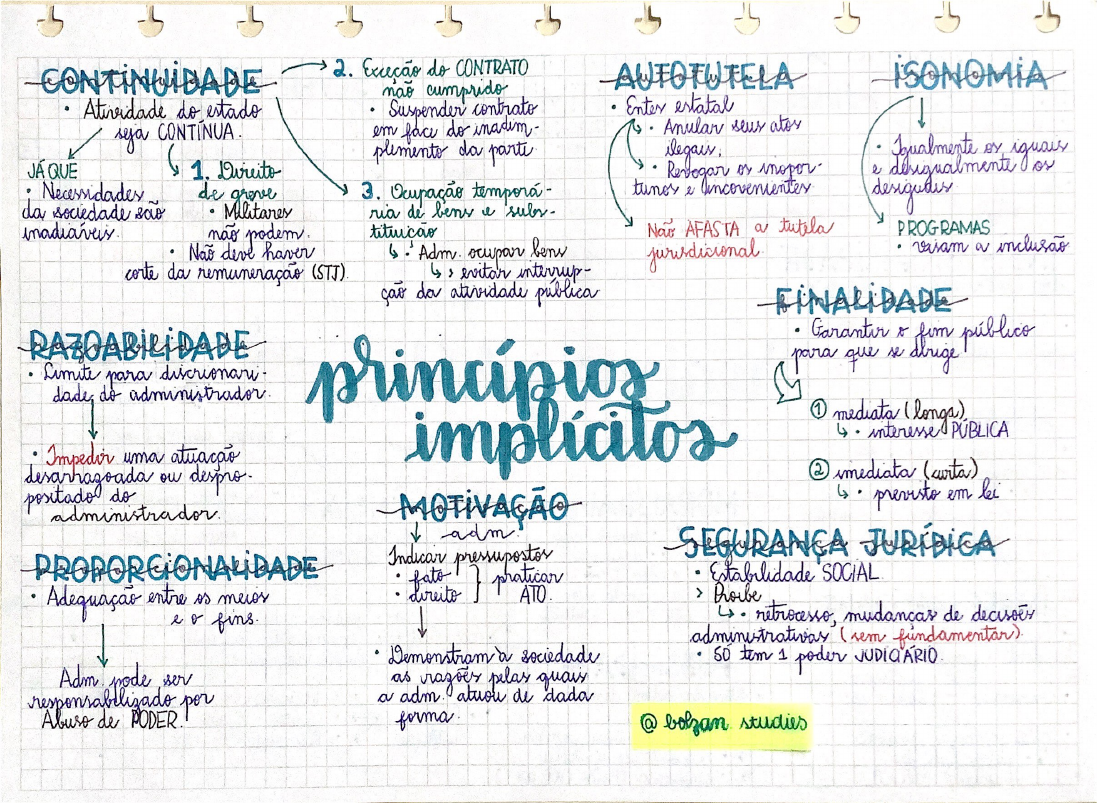 CONTINUIDADE
• Atividade do estado
seja CONTÍNUA.
JÁ QUE
• Necessidades
da sociedade são
inadiáveis.
1. Direito
de greve
• Militares
não podem.
• Não deve haver
corte da remuneração (STJ)
2. Exceção do CONTRATO
não cumprido
• Suspender contrato
em face do inadim-
plemento da parte
3. Ocupação temporá-
ria de bens e subs-
tituição
• Adm. ocupar bens
> evitar interrup-
ção da atividade pública
AUTOTUTELA
• Entes estatal
• Anular seus atos
ilegais;
• Revogar os inopor-
tunos e incovenientes
Não AFASTA a tutela
jurisdicional.
ISONOMIA
• Igualmente os iguais
e desigualmente os
desiguais
PROGRAMAS
• visam a inclusão
FINALIDADE
• Garantir o fim público
para que se dirige
① mediata (longa)
• interesse PÚBLICA
② imediata (curta)
• previsto em lei
RAZOABILIDADE
• Limite para discrionari-
dade do administrador.
• Impedir uma atuação
desarrazoada ou despro-
positado do
administrador.
princípios
implícitos
PROPORCIONALIDADE
• Adequação entre os meios
e o fins.
Adm. pode ser
responsabilizado por
Abuso de PODER.
MOTIVAÇÃO
adm.
Indicar pressupostos
• fato
• direito } praticar
ATO.
• Demonstram à sociedade
as razões pelas quais
a adm. atuou de dada
forma.
SEGURANÇA JURÍDICA
• Estabilidade SOCIAL
> Proibe
• retrocesso, mudanças de decisões
administrativas (sem fundamentar).
• SÓ tem 1 poder JUDICIÁRIO.
@bolzan.studies